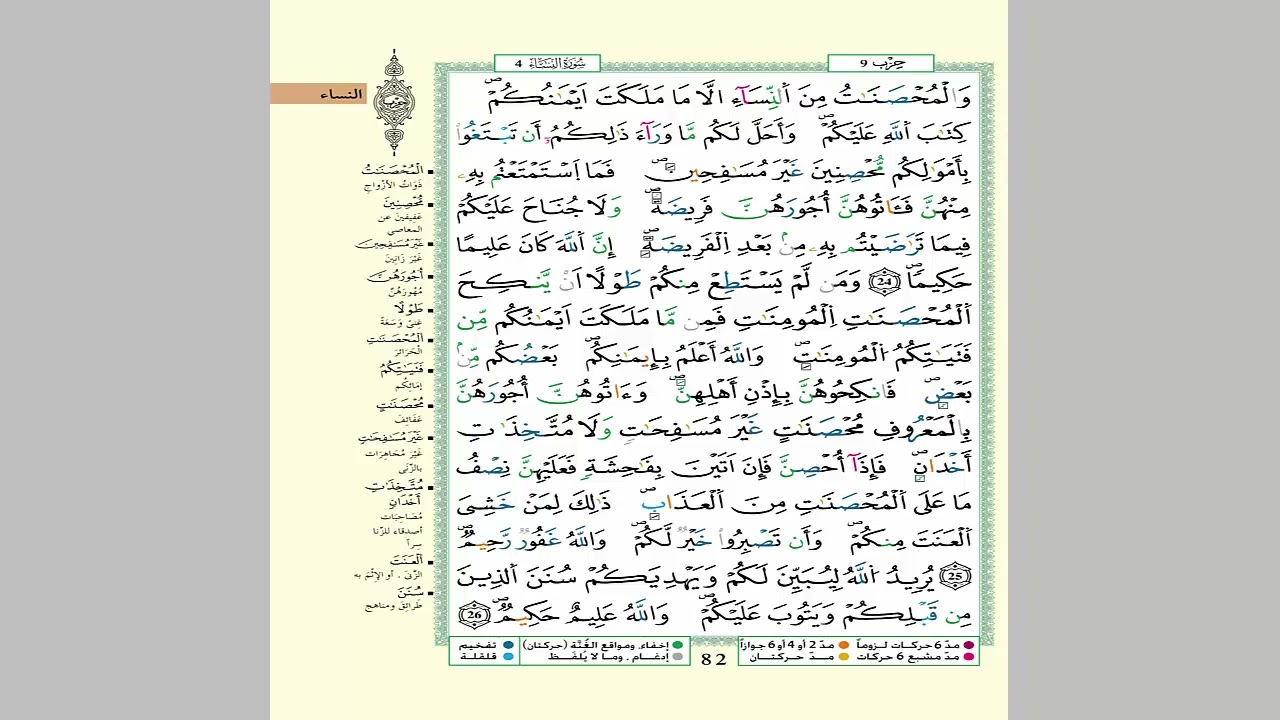 سُورَةُ النِّسَاءِ 4
حِزْب 9
النساء
حزب
وَالْمُحْصَنَٰتُ مِنَ اَ۬لنِّسَآءِ اِلَّا مَا مَلَكَتَ اَيْمَٰنُكُمْ
كِتَٰبَ اَ۬للَّهِ عَلَيْكُمْ وَأَحَلَّ لَكُم مَّا وَرَآءَ ذَٰلِكُمُۥ أَن تَبْتَغُوا۟
بِأَمْوَٰلِكُم مُّحْصِنِينَ غَيْرَ مُسَٰفِحِينَ فَمَا اَ۪سْتَمْتَعْتُم بِهِۦ
مِنْهُنَّ فَـَٔاتُوهُنَّ أُجُورَهُنَّ فَرِيضَةً وَلَا جُنَاحَ عَلَيْكُمْ
فِيمَا تَرَٰضَيْتُم بِهِۦ مِنۢ بَعْدِ اِ۬لْفَرِيضَةِ إِنَّ اَ۬للَّهَ كَانَ عَلِيمًا
حَكِيمًا 24 وَمَن لَّمْ يَسْتَطِعْ مِنكُمْ طَوْلًا اَنْ يَّنكِحَ
اَ۬لْمُحْصَنَٰتِ اِ۬لْمُومِنَٰتِ فَمِن مَّا مَلَكَتَ اَيْمَٰنُكُم مِّن
فَتَيَٰتِكُمُ اُ۬لْمُومِنَٰتِ وَاللَّهُ أَعْلَمُ بِإِيمَٰنِكُم بَعْضُكُم مِّنۢ
بَعْضٍ فَانكِحُوهُنَّ بِإِذْنِ أَهْلِهِنَّ وَءَاتُوهُنَّ أُجُورَهُنَّ
بِالْمَعْرُوفِ مُحْصَنَٰتٍ غَيْرَ مُسَٰفِحَٰتٍ وَلَا مُتَّخِذَٰتِ
أَخْدَانٍ فَإِذَآ أُحْصِنَّ فَإِنَ اَتَيْنَ بِفَٰحِشَةٍ فَعَلَيْهِنَّ نِصْفُ
مَا عَلَى اَ۬لْمُحْصَنَٰتِ مِنَ اَ۬لْعَذَابِ ذَٰلِكَ لِمَنْ خَشِىَ
اَ۬لْعَنَتَ مِنكُمْ وَأَن تَصْبِرُوا۟ خَيْرٌ لَّكُمْ وَاللَّهُ غَفُورٌ رَّحِيمٌ
25 يُرِيدُ اُ۬للَّهُ لِيُبَيِّنَ لَكُمْ وَيَهْدِيَكُمْ سُنَنَ اَ۬لذِينَ
مِن قَبْلِكُمْ وَيَتُوبَ عَلَيْكُمْ وَاللَّهُ عَلِيمٌ حَكِيمٌ 26
الْمُحْصَنَٰتُ
ذَوَاتُ الأَزْوَاجِ
مُحْصِنِينَ
عَفِيفِينَ عن
المعاصي
غَيْرَ مُسَٰفِحِينَ
غَيْرَ زَانِينَ
أُجُورَهُنَّ
مُهُورَهُنَّ
طَوْلًا
غِنًى وَسَعَةً
الْمُحْصَنَٰتِ
الْحَرَائِرَ
فَتَيَٰتِكُمُ
إِمَائِكُم
مُحْصَنَٰتٍ
عَفَائِفَ
غَيْرَ مُسَٰفِحَٰتٍ
غَيْرَ مُجَاهِرَاتٍ
بالزِّنَى
مُتَّخِذَٰتِ
أَخْدَانٍ
مُصَاحِبَاتِ
أصدقاء للزنا
سراً
الْعَنَتَ
الزنى . أو الإثم به
سُنَنَ
طَرائق ومناهج
مدّ 6 حركات لـزوماً مدّ 2 أو 4 أو 6 جوازاً
مدّ مشبع 6 حركات مـدّ حـركتـان
82
إخفاء، ومواقع الغُنَّة (حركتان) تفخيم
إدغـام، ومـا لا يُلفـظ قلقلـة